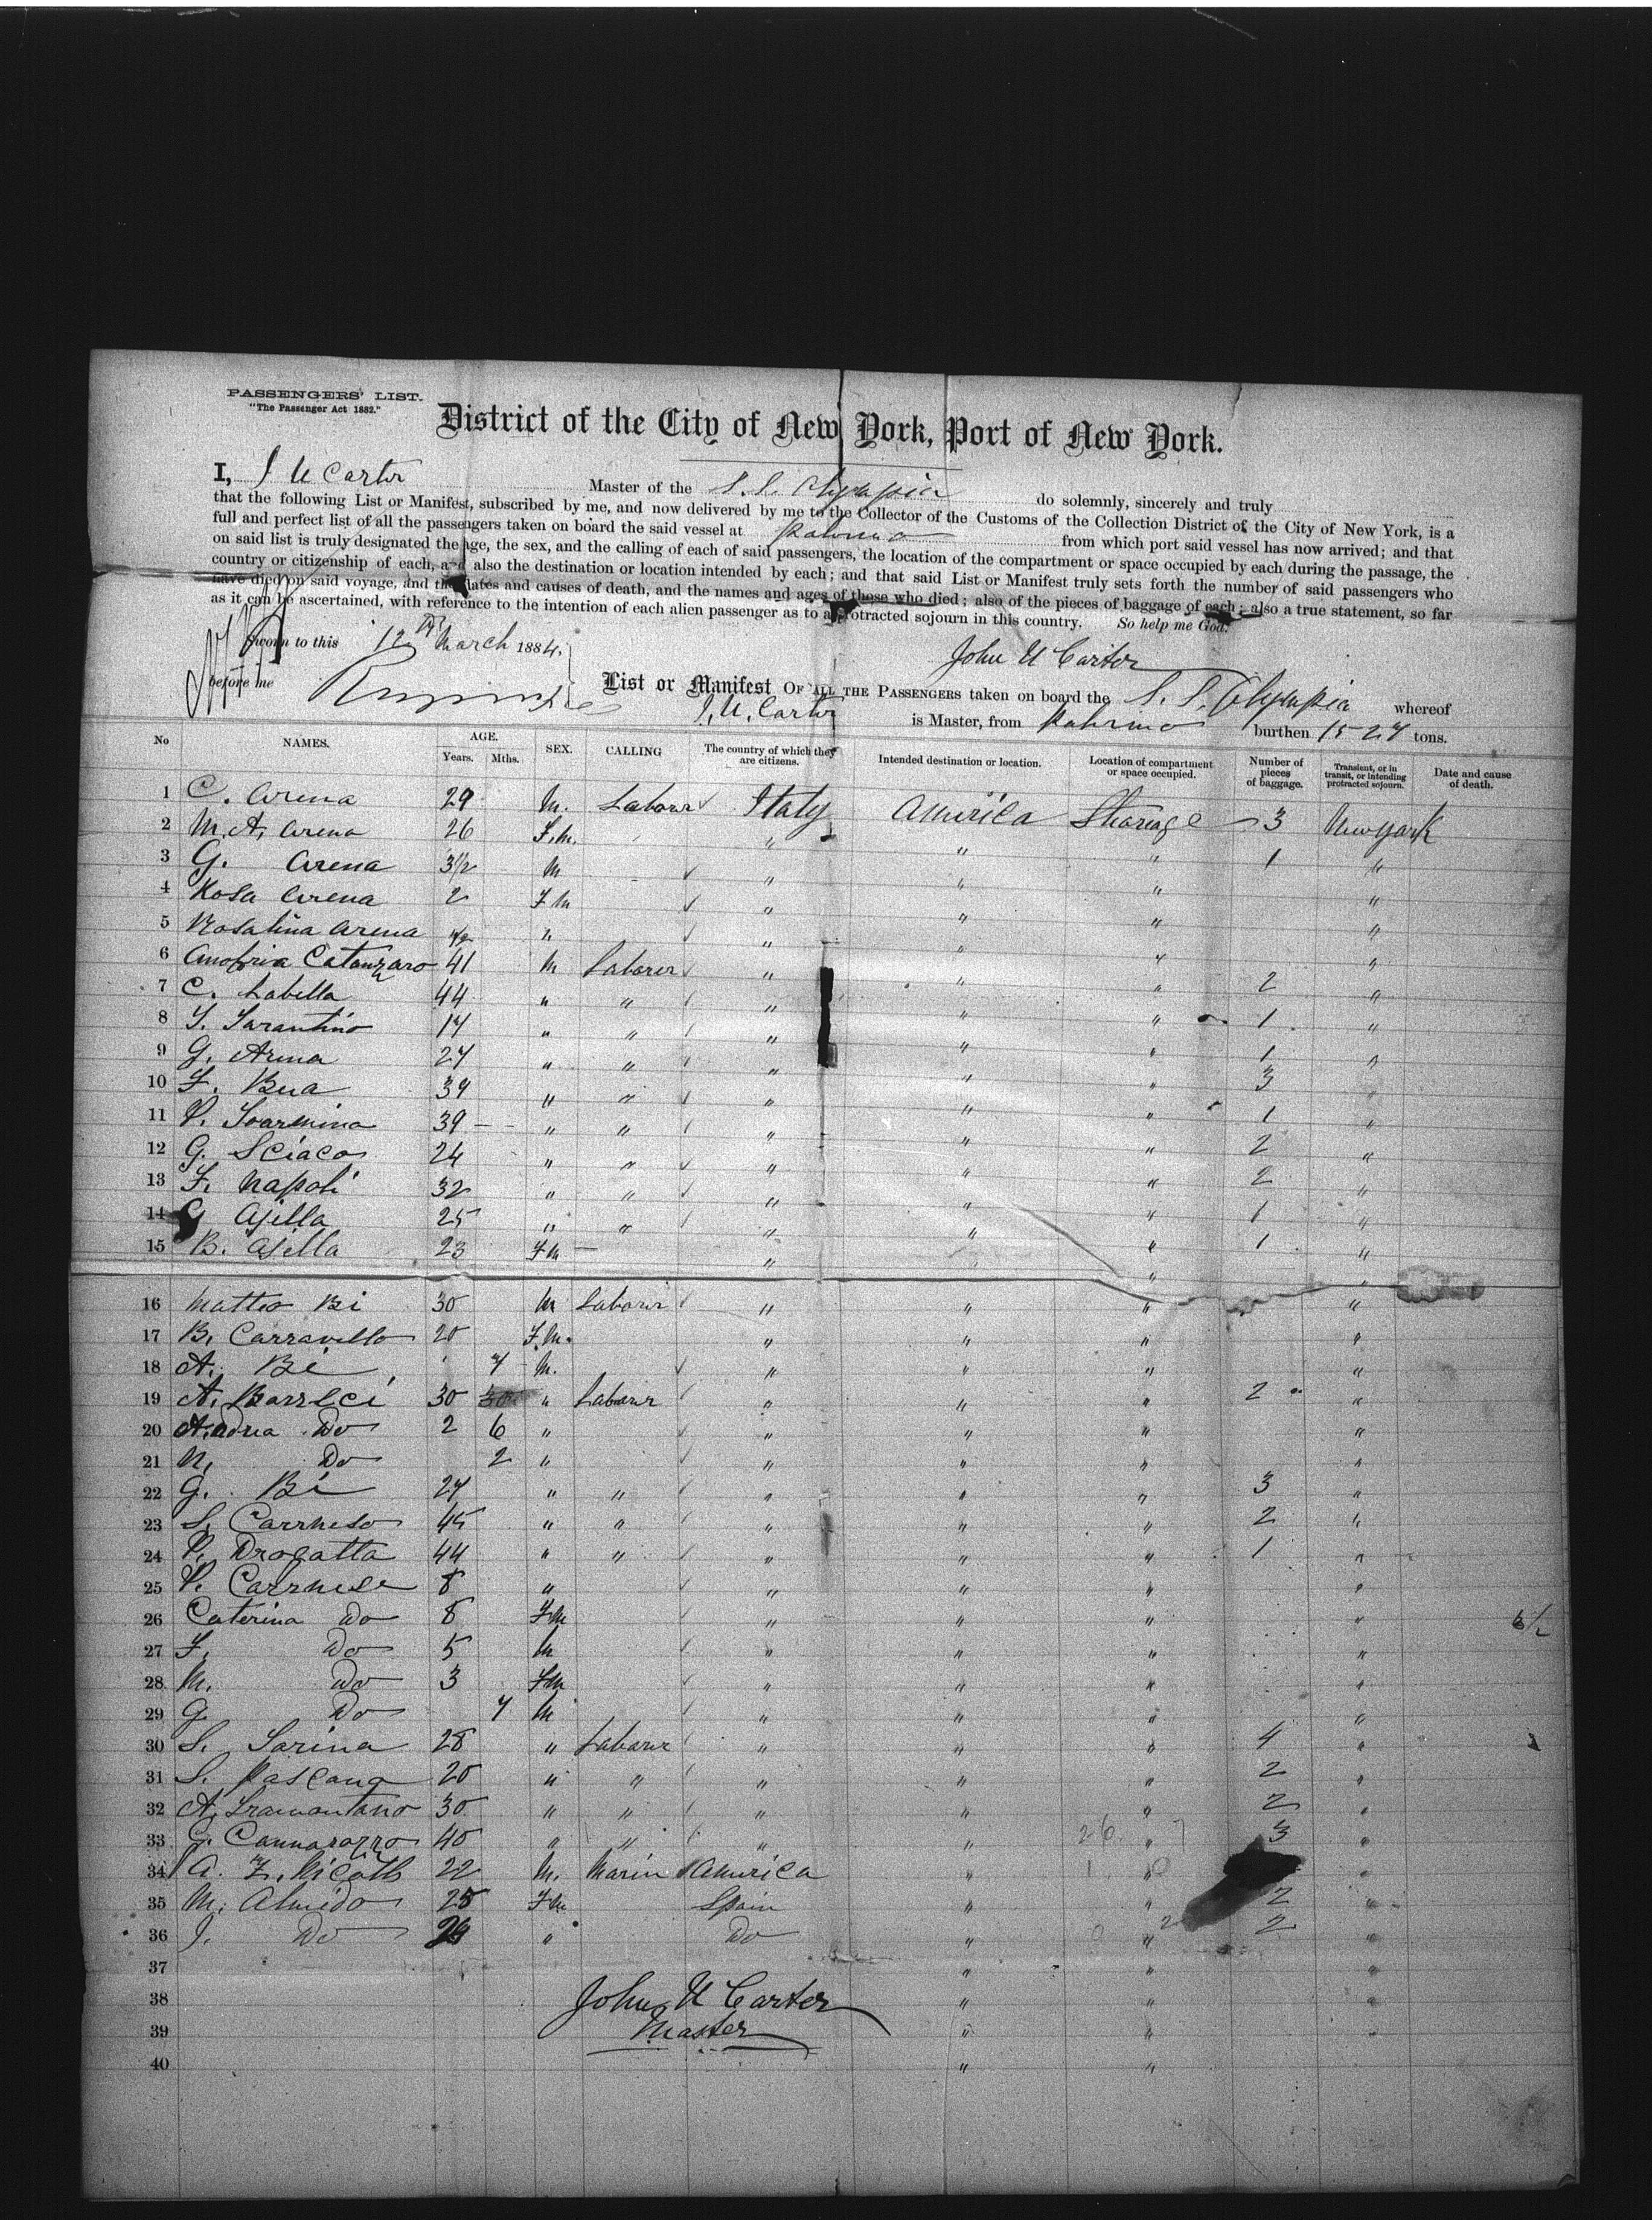 PASSENGERS' LIST.
"The Passenger Act 1882."
District of the City of New York, Port of New York.
I, J U Carter Master of the S.S. Olympia do solemnly, sincerely and truly
that the following List or Manifest, subscribed by me, and now delivered by me to the Collector of the Customs of the Collection District of the City of New York, is a
full and perfect list of all the passengers taken on board the said vessel at Palermo from which port said vessel has now arrived; and that
on said list is truly designated the age, the sex, and the calling of each of said passengers, the location of the compartment or space occupied by each during the passage, the
country or citizenship of each, and also the destination or location intended by each; and that said List or Manifest truly sets forth the number of said passengers who
have died on said voyage, and the dates and causes of death, and the names and ages of those who died; also of the pieces of baggage of each; also a true statement, so far
as it can be ascertained, with reference to the intention of each alien passenger as to a protracted sojourn in this country. So help me God.
Sworn to this 12th March 1884,
John U Carter
before me
List or Manifest OF ALL THE PASSENGERS taken on board the S. S. Olympia whereof
J. U. Carter is Master, from Palermo burthen 1527 tons.
No NAMES. AGE. Years. Mths. SEX. CALLING The country of which they are citizens. Intended destination or location. Location of compartment or space occupied. Number of pieces of baggage. Transient, or in transit, or intending protracted sojourn. Date and cause of death.
1 C. Arena 29 M. Labour Italy America Stearage 3 New York
2 M. A. Arena 26 F.m. " " " 1 "
3 G. Arena 3 1/2 M " " " "
4 Rosa Arena 2 F m " " " "
5 Rosalina Arena " " " "
6 Anofria Catanzaro 41 M Laborer " " " 2 "
7 C. Labella 44 " " " " " 1 "
8 S. Sarantino 17 " " " " " 1 "
9 G. Arena 27 " " " " " 3 "
10 F. Bua 39 " " " " " 1 "
11 P. Soarmina 39 " " " " " 2 "
12 G. Sciaco 24 " " " " " 2 "
13 F. Napoli 32 " " " " " 1 "
14 G Ajella 25 " " " " " 1 "
15 B. Ajella 23 F m " " " "
16 Matteo Bi 30 M Labour " " " "
17 B. Carravello 20 F. M. " " " "
18 A. Bi 7 M. " " " "
19 A. Barreci 30 30 " Labour " " " 2 "
20 Andrea Do 2 6 " " " " "
21 N. Do 2 " " " " "
22 G. Bi 27 " " " " " 3 "
23 S. Carrneso 45 " " " " " 2 "
24 P. Drogatta 44 " " " " " 1 "
25 P. Carrnese 8 " " " " "
26 Caterina Do 8 F M " " " "
27 F. Do 5 M " " " "
28 M. Do 3 F M " " " "
29 G Do 7 M " " " "
30 S. Sarina 28 " Labour " " " 4 "
31 S. Pascana 20 " " " " " 2 "
32 A. Tramontano 30 " " " " " 2 "
33 G. Cannarozzo 40 " " " " " 3 "
34 A. F. Nicolls 22 M. Marin America " " "
35 M. Almido 28 F M Spain " " 2 "
36 J. Do " Do " " 2 "
37 " " "
38 " " "
39 " " "
40 " "
John U Carter
Master